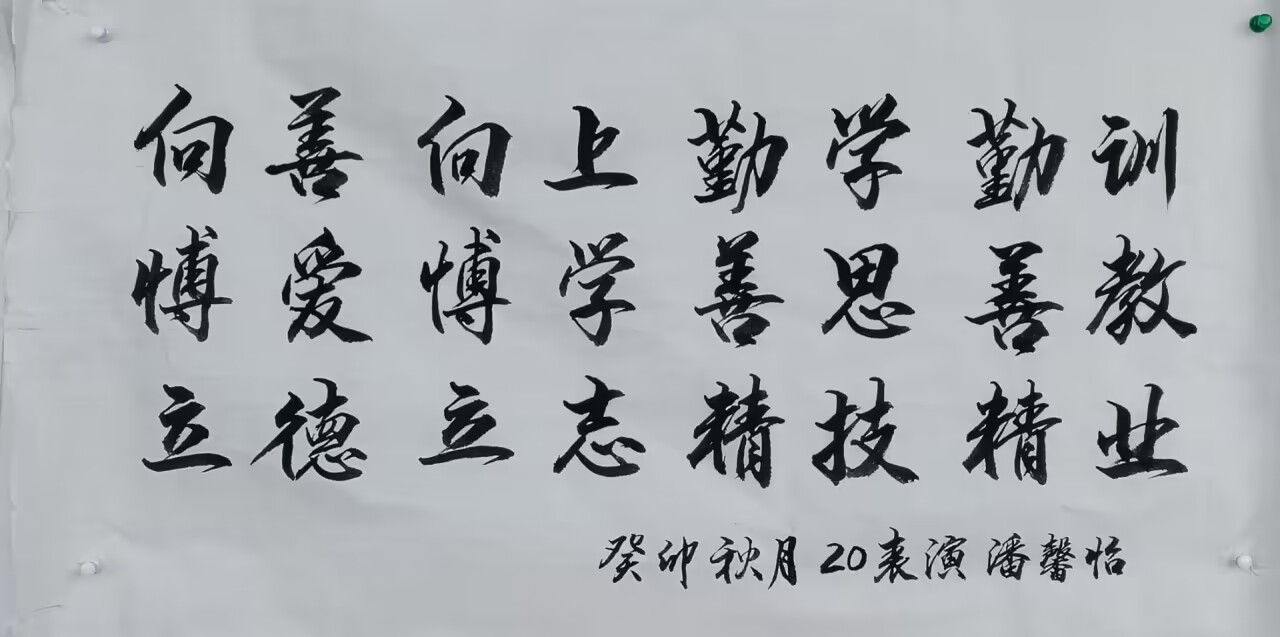 向善向上勤学勤训
博爱博学善思善教
立德立志精技精业
癸卯秋月20表演潘馨怡